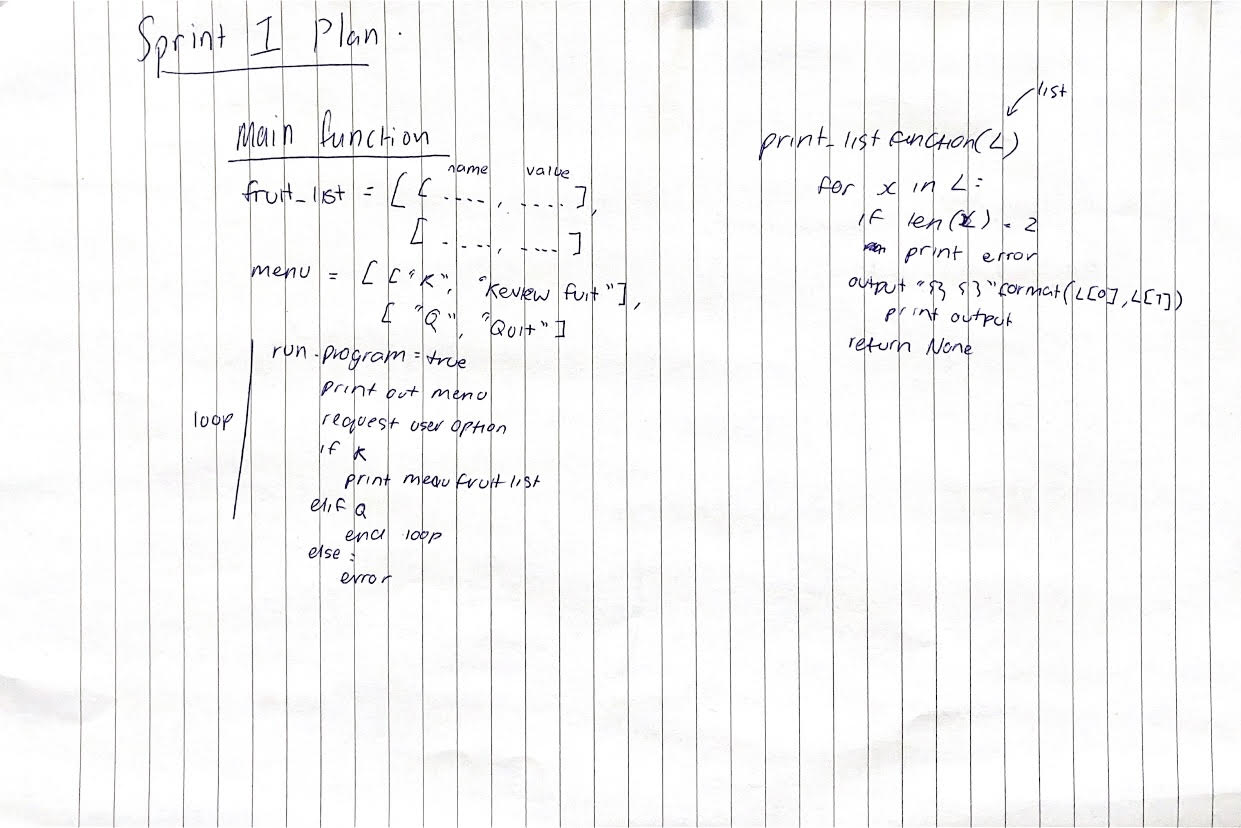 Sprint 1 Plan.
Main function
name value
fruit_list = [ [ ...., ....],
[ ...., ....]
menu = [ ["K", "Review fuit"],
[ "Q", "Quit"]
loop
run.program = true
print out menu
request user option
if K
print menu fruit list
elif Q
end loop
else :
error
list
print_list function(L)
for x in L:
if len(x) = 2
print error
output "{} {}" format(L[0], L[1])
print output
return None